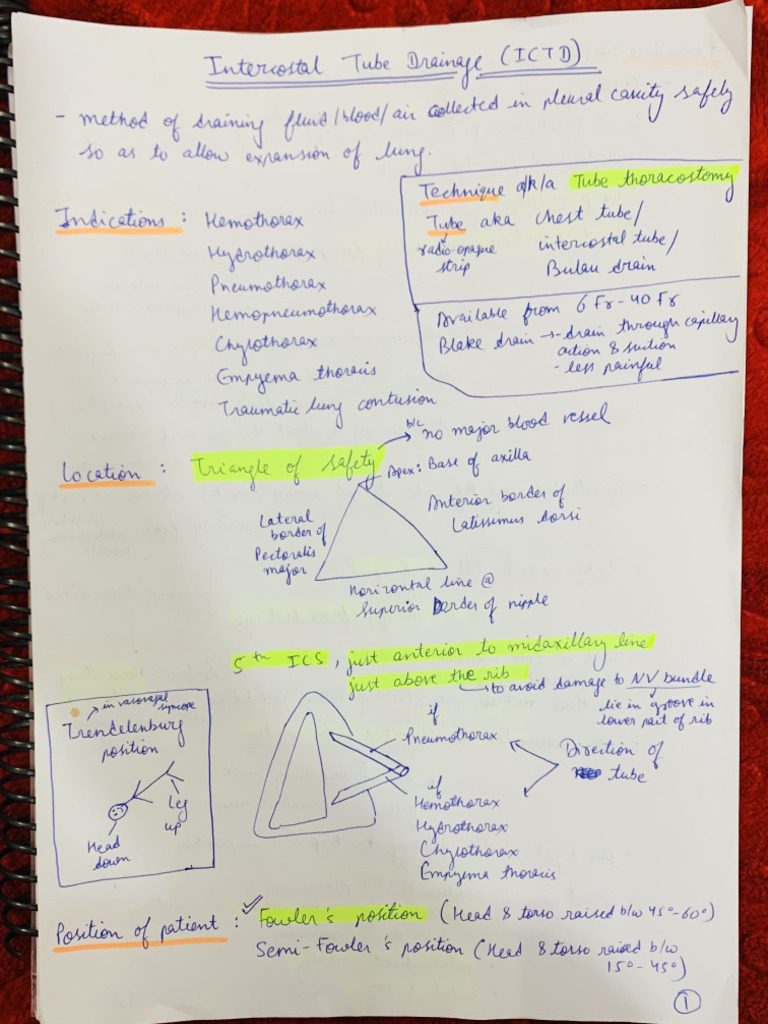 Intercostal Tube Drainage (ICTD)
- method of draining fluid/blood/air collected in pleural cavity safely
so as to allow expansion of lung.
Technique a/k/a Tube thoracostomy
Tube aka chest tube/
radio-opaque intercostal tube/
strip Bulau drain
Available from 6 Fr-40 Fr
Blake drain → - drain through capillary
action & suction
- less painful
Indications : Hemothorax
Hydrothorax
Pneumothorax
Hemopneumothorax
Chylothorax
Empyema thoracis
Traumatic lung contusion
Location : Triangle of safety → b/c no major blood vessel
Apex : Base of axilla
Lateral
border of
Pectoralis
major
Anterior border of
Latissimus dorsi
Horizontal line @
superior border of nipple
5th ICS, just anterior to midaxillary line
just above the rib
→ to avoid damage to NV bundle
lie in groove in
lower part of rib
→ in vasovagal
syncope
Trendelenburg
position
Leg
up
Head
down
if
Pneumothorax
if
Hemothorax
Hydrothorax
Chylothorax
Empyema thoracis
Direction of
tube
Position of patient : ✓ Fowler's position (Head & torso raised b/w 45°-60°)
Semi-Fowler's position (Head & torso raised b/w
15°-45°)
1